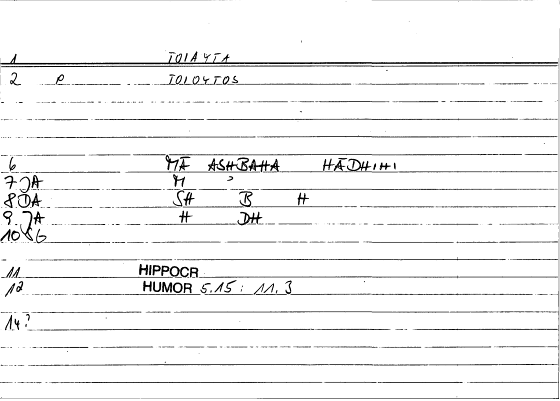 1 TOIAYTA
2 P TOIOYTOS
6 MĀ ASHBAHA HĀDHIHI
7 JA M ʾ
8 JA SH B H
9. JA H DH
10 SG
11 HIPPOCR
12 HUMOR 5.15 : 11.3
14?